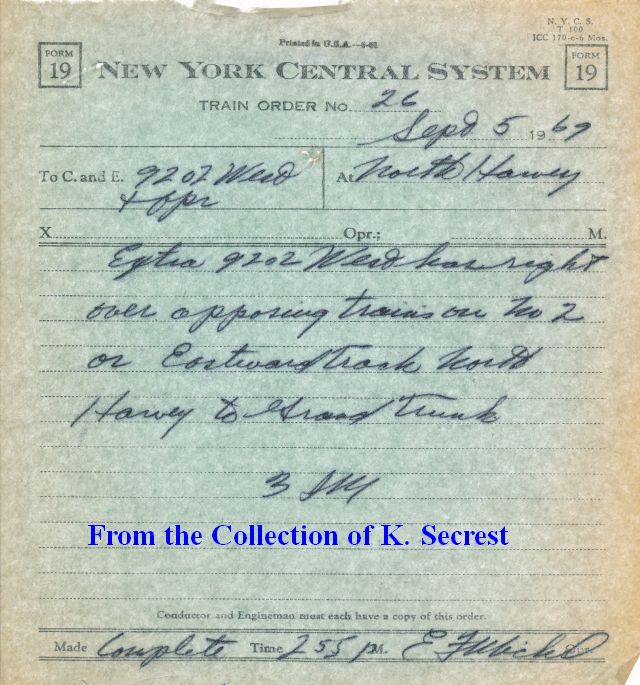 N. Y. C. S.
T 100
ICC 170-c-6 Mos.
Printed in U.S.A.—6-61
FORM 19
NEW YORK CENTRAL SYSTEM
FORM 19
TRAIN ORDER No. 26
Sept 5 1969
To C. and E. 9202 West At North Harvey
+ opr
X Opr.; M.
Extra 9202 West has right
over opposing trains on No 2
or Eastward track North
Harvey to Grand Trunk
From the Collection of K. Secrest
Conductor and Engineman must each have a copy of this order.
Made Complete Time 255 P M. Opr